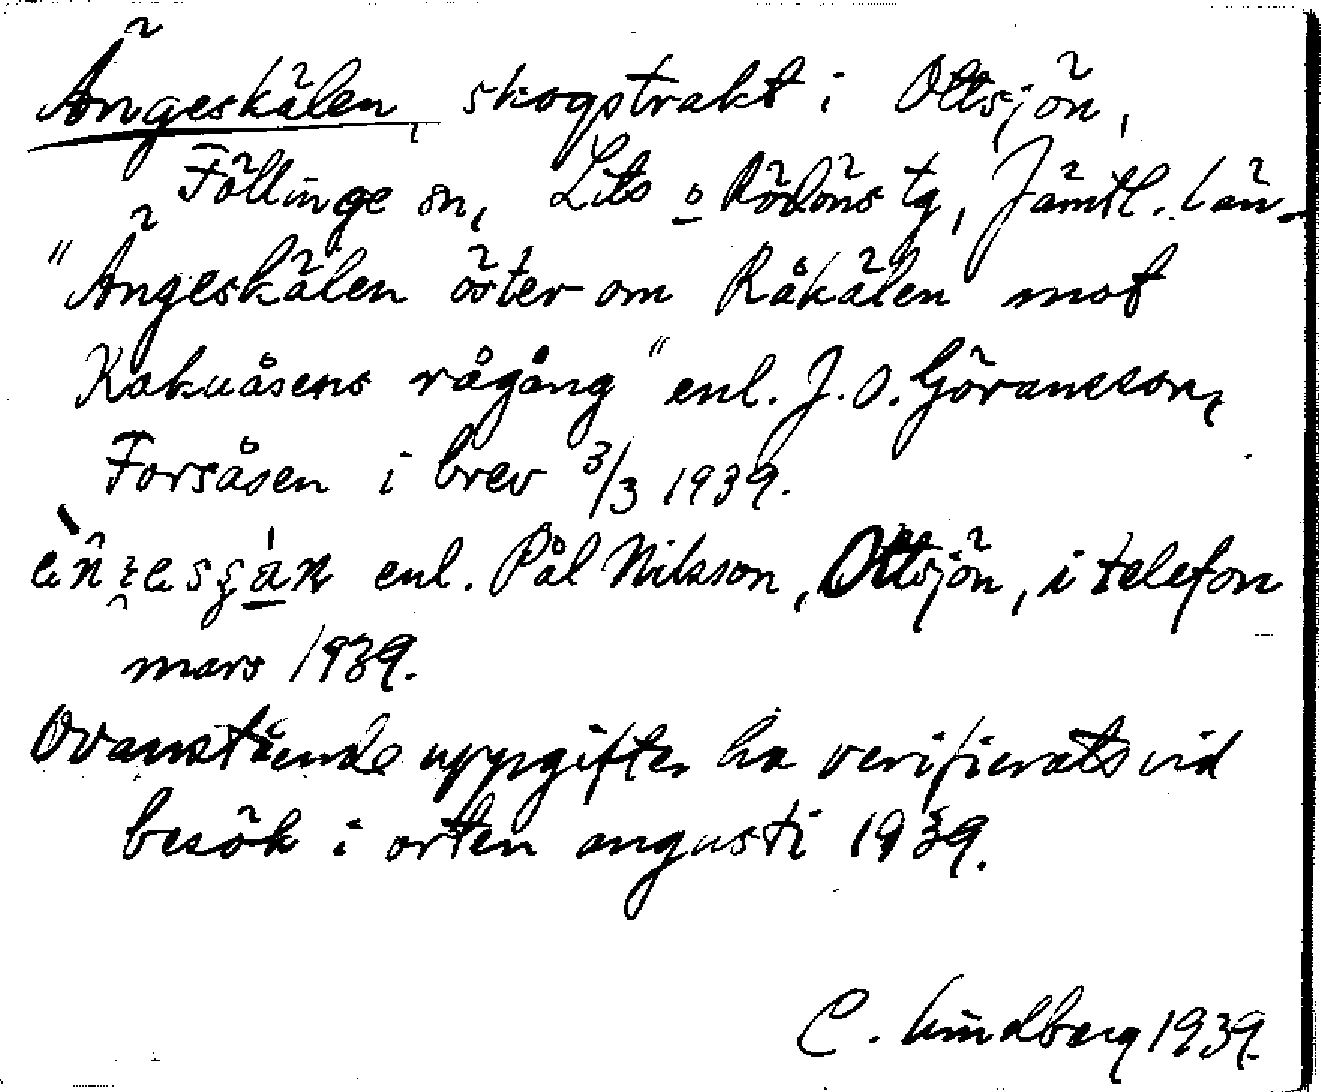 Ängeskälen, skogstrakt i Ottsjön,
Föllinge sn, Lits o Rödöns tg, Jämtl. län.
"Ängeskälen öster om Råkälen mot
Kakuåsens rågång" enl. J. O. Göransson,
Forsåsen i brev 3/3 1939.
enl. Pål Nilsson, Ottsjön, i telefon
mars 1939.
Ovanstående uppgifter ha verifierats vid
besök i orten augusti 1939.
C. Lindberg 1939.